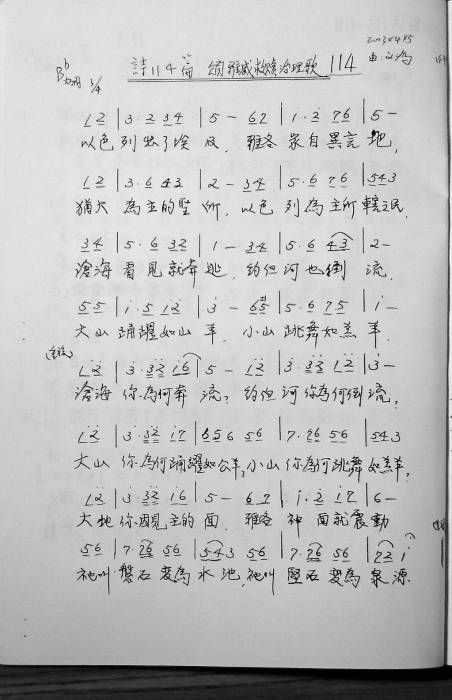 詩114篇 頌雅威救贖治理歌 114
3/4
1 2 | 3 · 2 3 4 | 5 - 6 2 | 1 · 2 7 6 | 5 -
以色列出了埃及, 雅各家自異言地,
1 2 | 3 · 6 4 3 | 2 - 3 4 | 5 · 6 7 6 | 5 4 3
猶大為主的聖所, 以色列為主所轄之民,
3 4 | 5 · 6 3 2 | 1 - 3 4 | 5 · 6 4 3 | 2 -
滄海看見就奔逃, 約但河也倒流,
5 5 | 1 · 5 1 2 | 3 - 6 5 | 5 · 6 7 5 | 1 -
大山踊躍如山羊, 小山跳舞如羔羊.
1 2 | 3 · 3 2 1 6 | 5 - 1 2 | 3 · 3 2 1 2 | 3 -
滄海你為何奔流? 約但河你為何倒流?
1 2 | 3 · 3 2 1 7 | 6 5 6 5 6 | 7 · 7 6 5 6 | 5 4 3
大山你為何踊躍如公羊? 小山你為何跳舞如羔羊?
1 2 | 3 · 3 2 1 6 | 5 - 6 7 | 1 · 2 1 7 | 6 -
大地你因見主的面, 雅各神面就震動
5 6 | 7 · 7 6 5 6 | 5 4 3 5 6 | 7 · 7 6 5 6 | 7 2 1
祂叫磐石變為水池, 祂叫堅石變為泉源.